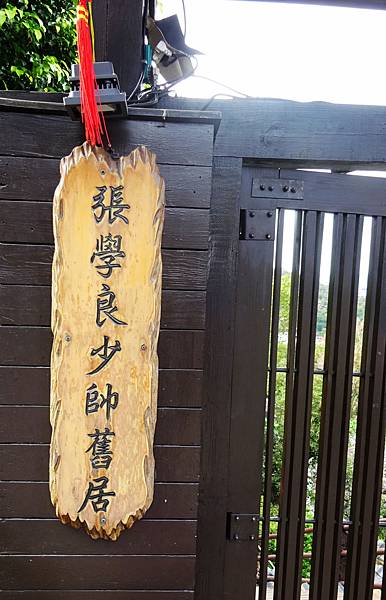 張學良少帥舊居